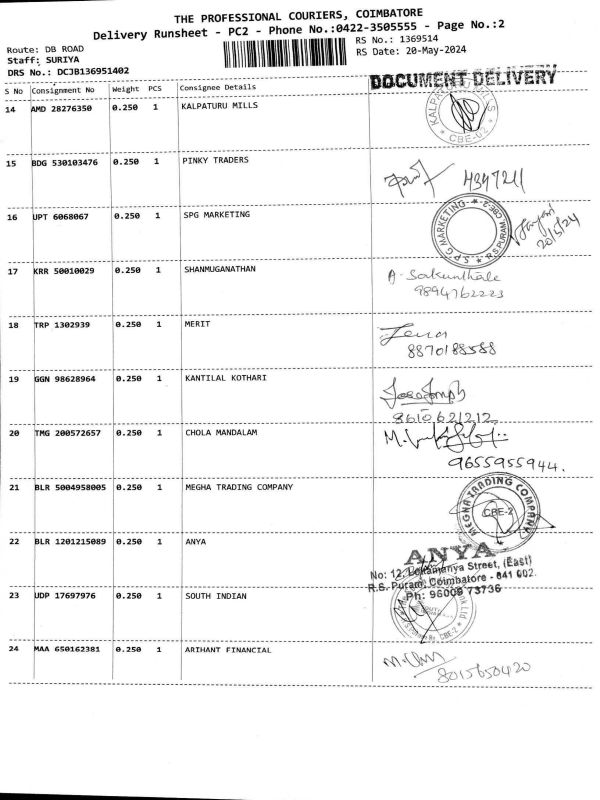 THE PROFESSIONAL COURIERS, COIMBATORE
Delivery Runsheet - PC2 - Phone No.:0422-3505555 - Page No.:2
Route: DB ROAD
Staff: SURIYA
DRS No.: DCJB136951402
RS No.: 1369514
RS Date: 20-May-2024
DOCUMENT DELIVERY
S No Consignment No Weight PCS Consignee Details
14 AMD 28276350 0.250 1 KALPATURU MILLS
CBE-2
15 BDG 530103476 0.250 1 PINKY TRADERS
16 UPT 6068067 0.250 1 SPG MARKETING
SPG MARKETING R.S PURAM CBE-2
20/5/24
17 KRR 50010029 0.250 1 SHANMUGANATHAN
A- Sakunthale
9894762223
18 TRP 1302939 0.250 1 MERIT
8870188588
19 GGN 98628964 0.250 1 KANTILAL KOTHARI
8610621212
20 TMG 200572657 0.250 1 CHOLA MANDALAM
9655955944.
21 BLR 5004958005 0.250 1 MEGHA TRADING COMPANY
MEGHA TRADING COMPANY
CBE-2
22 BLR 1201215089 0.250 1 ANYA
ANYA
No: 12, Lokamanya Street, (East)
R.S. Puram, Coimbatore - 641 002.
Ph: 96009 73736
23 UDP 17697976 0.250 1 SOUTH INDIAN
24 MAA 650162381 0.250 1 ARIHANT FINANCIAL
8015650420